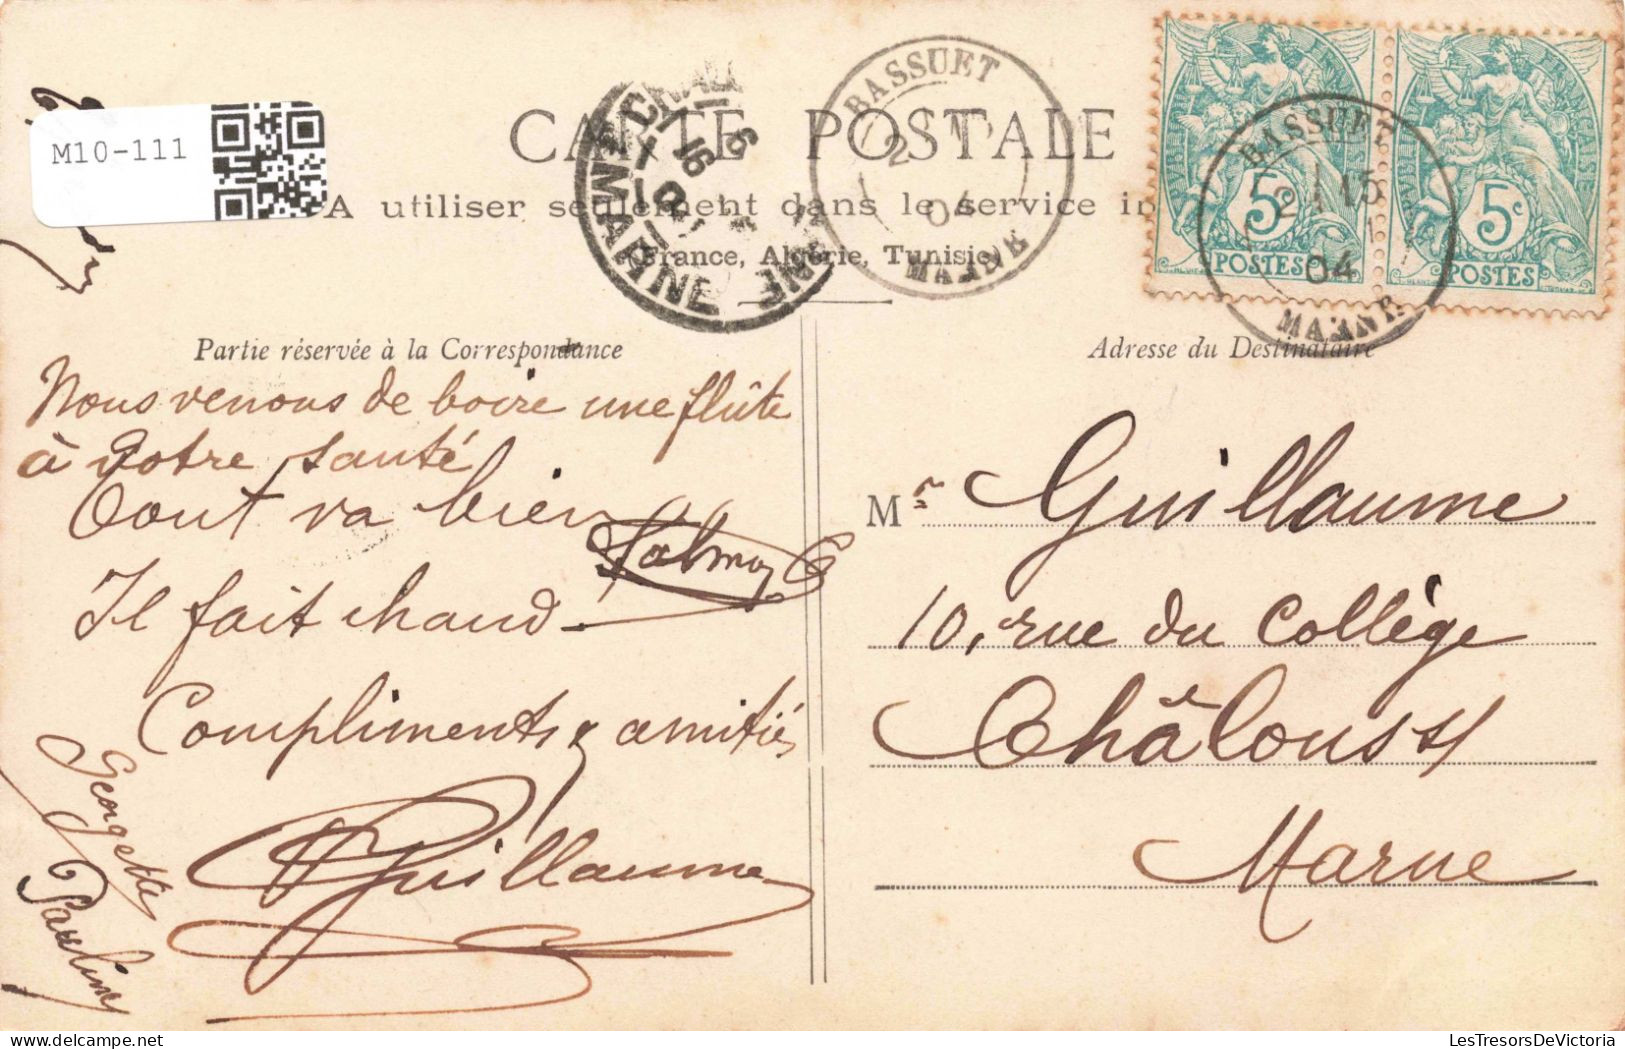 M10-111
CARTE POSTALE
A utiliser seulement dans le service in
(France, Algérie, Tunisie)
BASSUET
2
04
MARNE
MARNE
16
BASSUET
15
04
MARNE
FRANÇAISE
5c
POSTES
5c
POSTES
Partie réservée à la Correspondance
Nous venons de boire une flûte
à votre santé
Tout va bien
Il fait chaud
Compliments & amitiés
Guillaume
Georgette
Pauline
Adresse du Destinataire
Mr Guillaume
10, rue du Collège
Châlons s/
Marne
LesTresorsDeVictoria